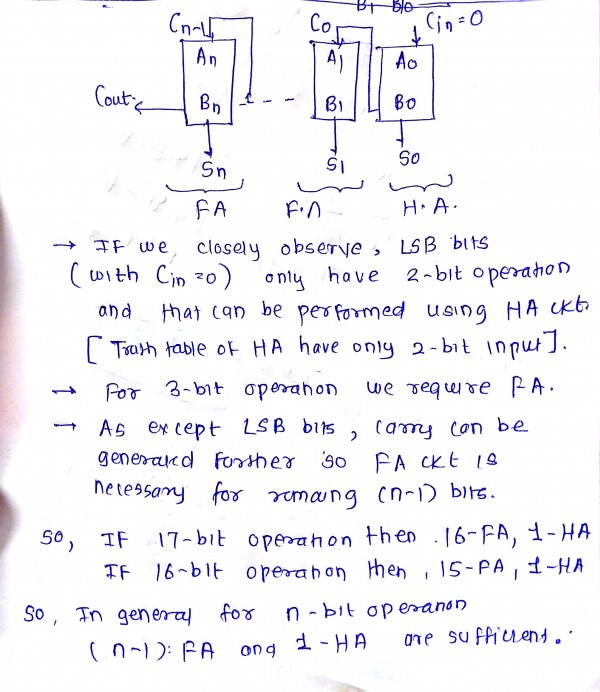 B1 B0
Cn-1 C0 Cin=0
An A1 A0
Cout Bn - - - B1 B0
Sn S1 S0
FA F.A H.A.
→ If we closely observe, LSB bits
(with Cin=0) only have 2-bit operation
and that can be performed using HA ckt.
[Truth table of HA have only 2-bit input].
→ For 3-bit operation we require FA.
→ As except LSB bits, carry can be
generated further so FA ckt is
necessary for remaing (n-1) bits.
So, If 17-bit operation then .16-FA, 1-HA
If 16-bit operation then, 15-FA, 1-HA
So, In general for n-bit operation
(n-1): FA and 1-HA are sufficient.